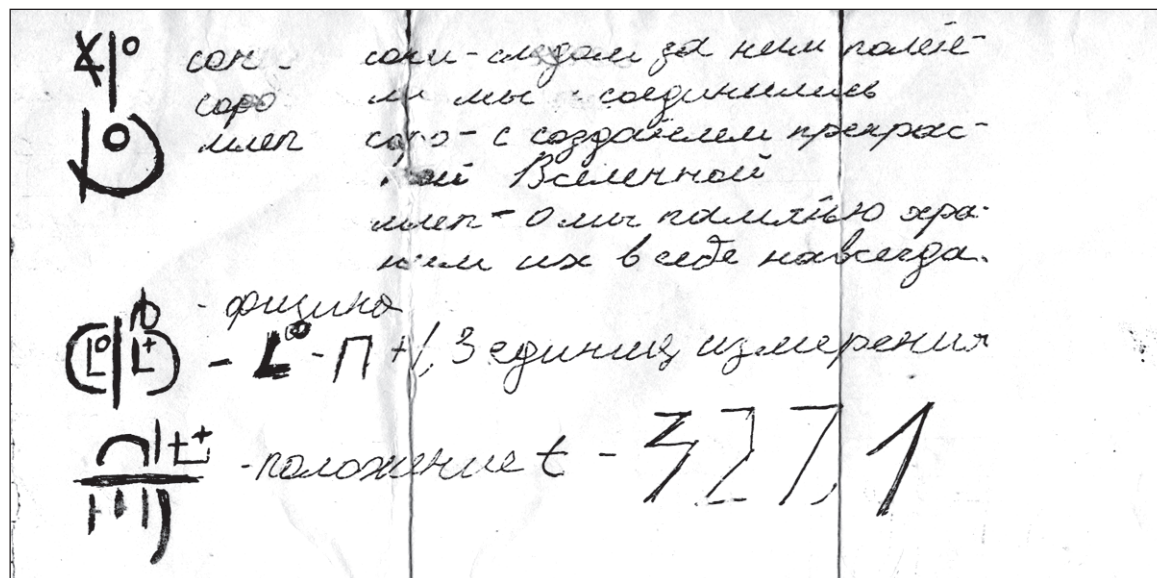 сони - следом за ним полете-
соро ли мы - соединились
млеп соро - с создателем прекрас-
ной Вселенной
млеп - О мы памятью хра-
ним их в себе навсегда.
- физика
- L - П +1,3 единиц измерения
- положение t - 327,1